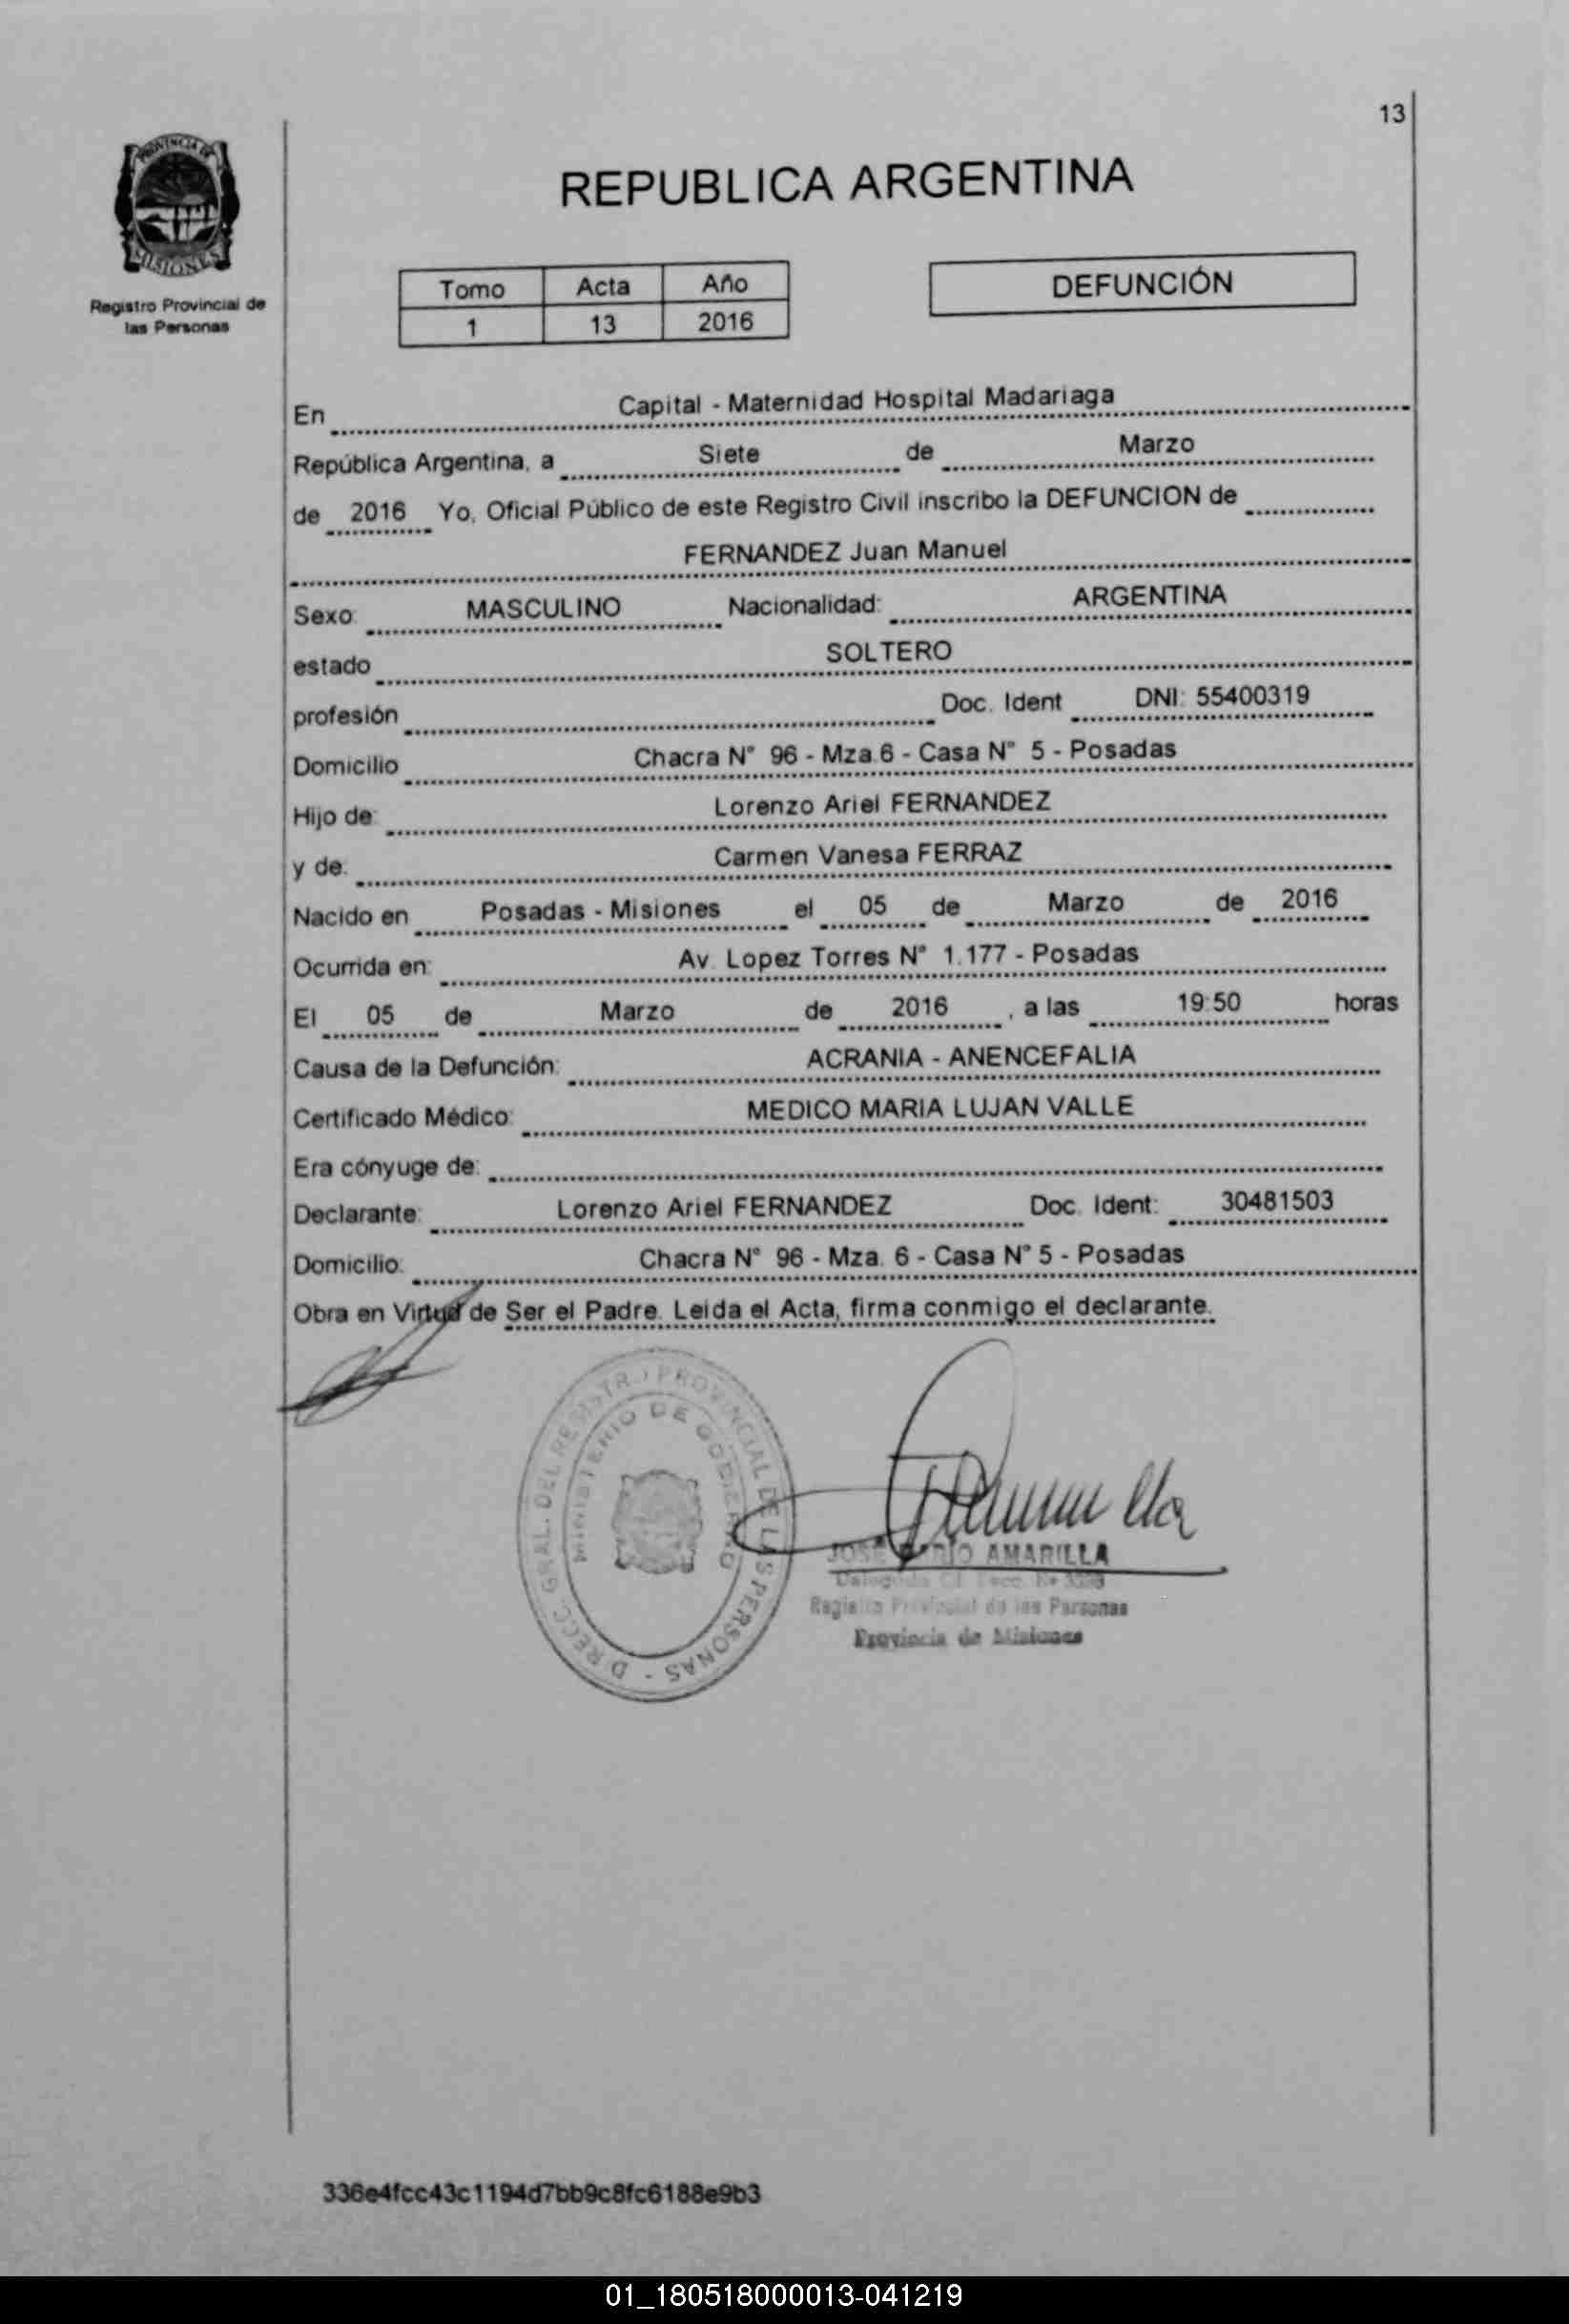 13
PROVINCIA DE
MISIONES
Registro Provincial de
las Personas
REPUBLICA ARGENTINA
Tomo Acta Año
1 13 2016
DEFUNCIÓN
En Capital - Maternidad Hospital Madariaga
República Argentina, a Siete de Marzo
de 2016 Yo, Oficial Público de este Registro Civil inscribo la DEFUNCION de
FERNANDEZ Juan Manuel
Sexo: MASCULINO Nacionalidad: ARGENTINA
estado SOLTERO
profesión Doc. Ident DNI: 55400319
Domicilio Chacra N° 96 - Mza.6 - Casa N° 5 - Posadas
Hijo de: Lorenzo Ariel FERNANDEZ
y de: Carmen Vanesa FERRAZ
Nacido en Posadas - Misiones el 05 de Marzo de 2016
Ocurrida en: Av. Lopez Torres N° 1.177 - Posadas
El 05 de Marzo de 2016 , a las 19:50 horas
Causa de la Defunción: ACRANIA - ANENCEFALIA
Certificado Médico: MEDICO MARIA LUJAN VALLE
Era cónyuge de:
Declarante: Lorenzo Ariel FERNANDEZ Doc. Ident: 30481503
Domicilio: Chacra N° 96 - Mza. 6 - Casa N° 5 - Posadas
Obra en Virtud de Ser el Padre. Leida el Acta, firma conmigo el declarante.
DIRECC. GRAL. DEL REGISTRO PROVINCIAL DE LAS PERSONAS -
MINISTERIO DE GOBIERNO
JOSE AMARILLA
Registro Provincial de las Personas
Provincia de Misiones
336e4fcc43c1194d7bb9c8fc6188e9b3
01_180518000013-041219